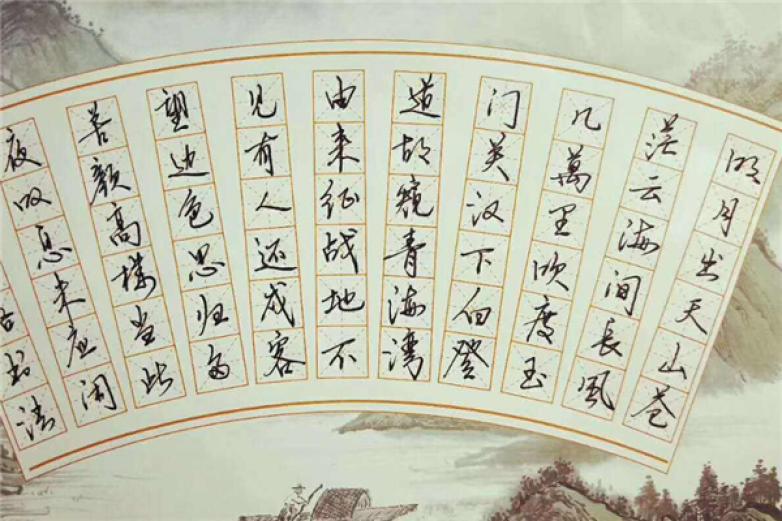 明月出天山苍
茫云海间長風
几萬里吹度玉
门关汉下白登
道胡窥青海湾
由来征战地不
见有人还戍客
望边色思归多
苦颜高楼当此
夜叹息未应闲
书法